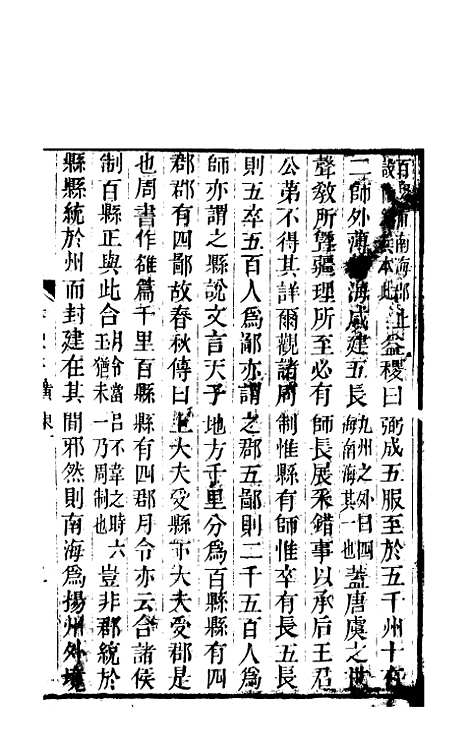 二師外薄海咸建五長九州之外曰四海南海其一也蓋唐虞之世
聲教所曁疆理所至必有師長展采錯事以承后王君
公弟不得其詳爾觀諸周制惟縣有師惟卒有長五長
則五卒五百人爲鄙亦謂之郡五鄙則二千五百人爲
師亦謂之縣說文言天子地方千里分爲百縣縣有四
郡郡有四鄙故春秋傳曰上大夫受縣下大夫受郡是
也周書作雒篇千里百縣縣有四郡月令亦云合諸侯
制百縣正與此合月令當呂不韋之時六王猶未一乃周制也豈非郡統於
縣縣統於州而封建在其間邪然則南海爲揚州外境